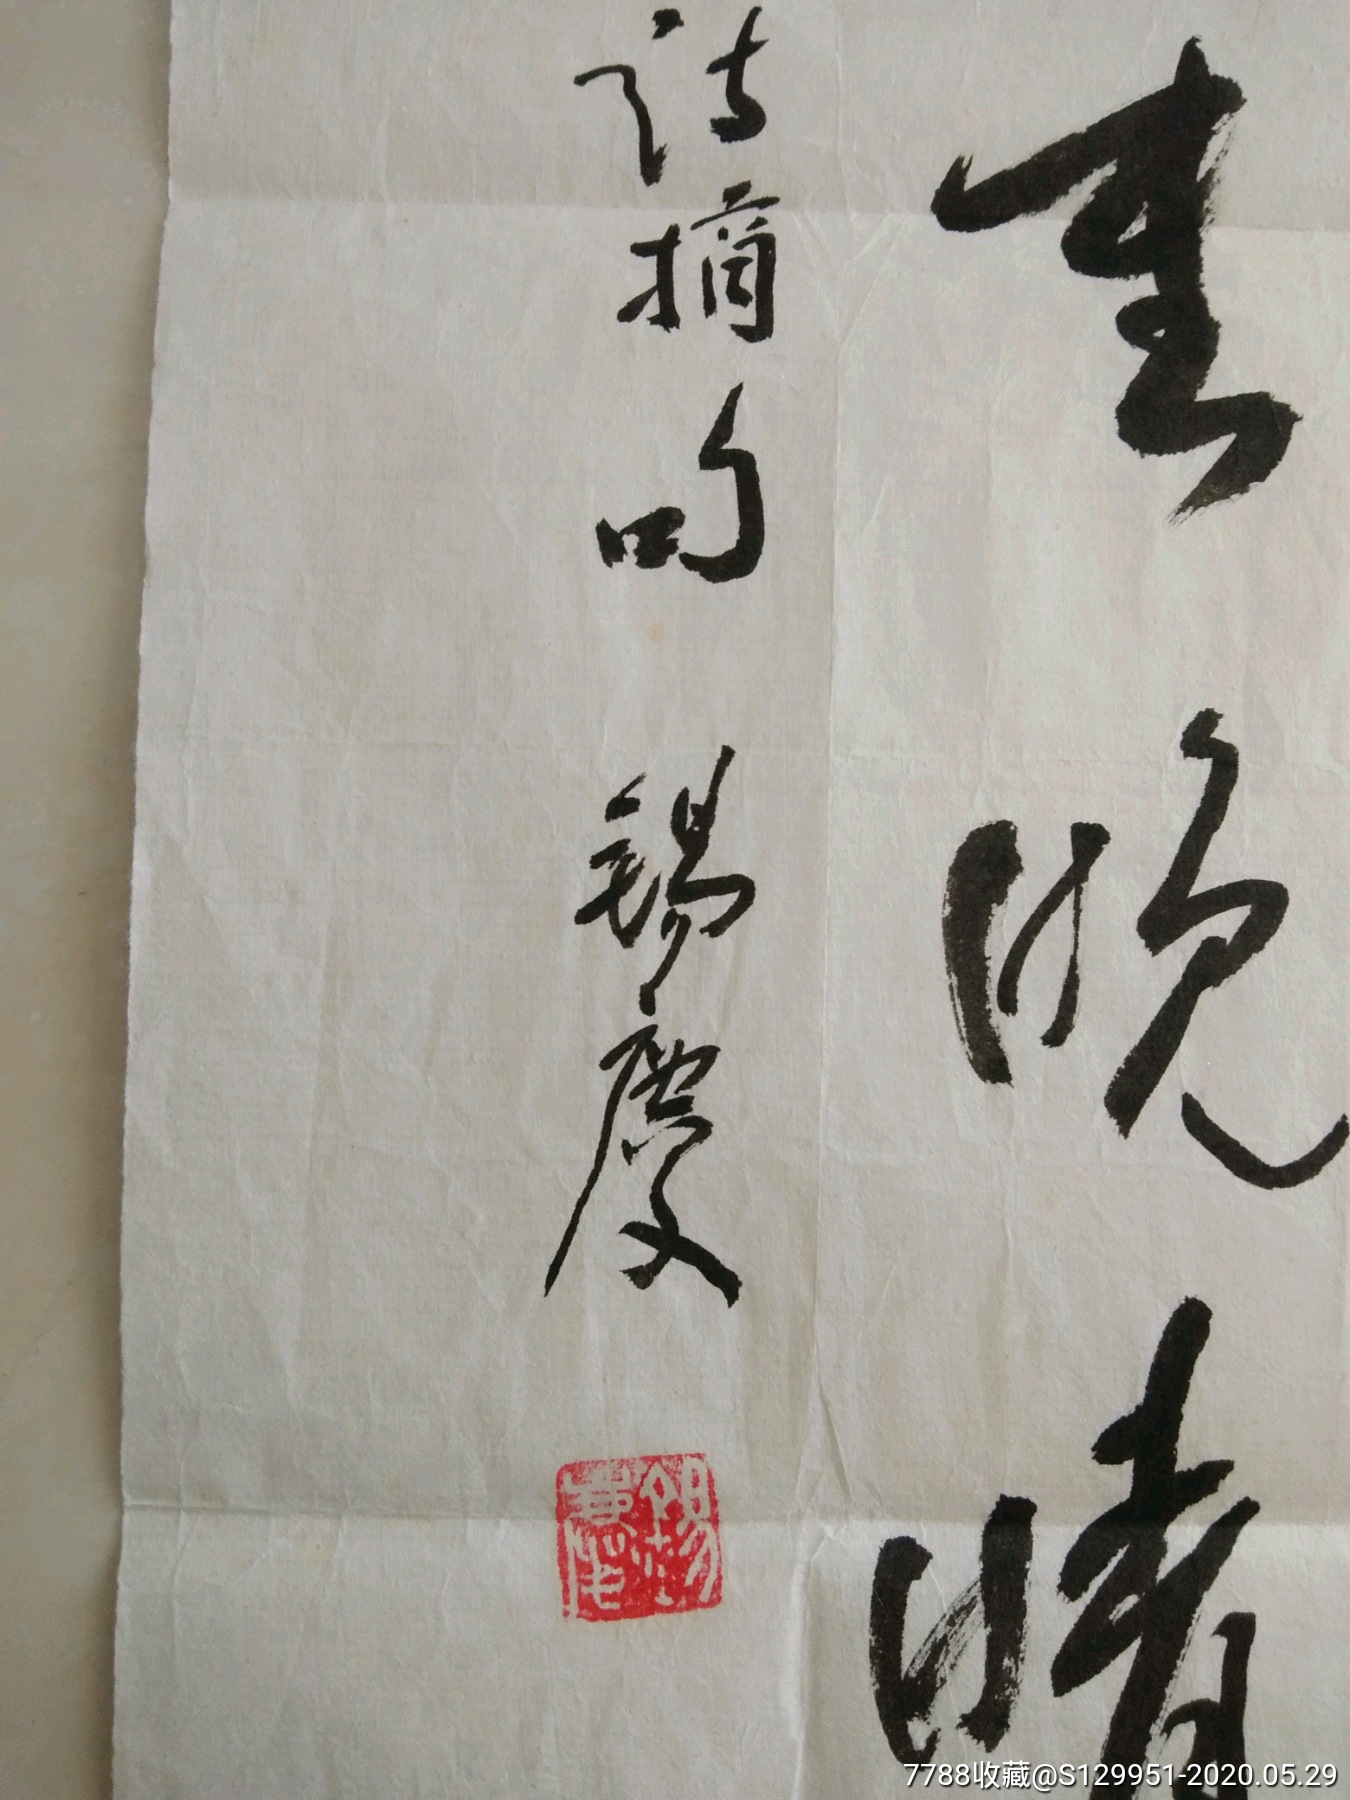 重晚晴
诗摘句 锡庆
7788收藏@S129951-2020.05.29